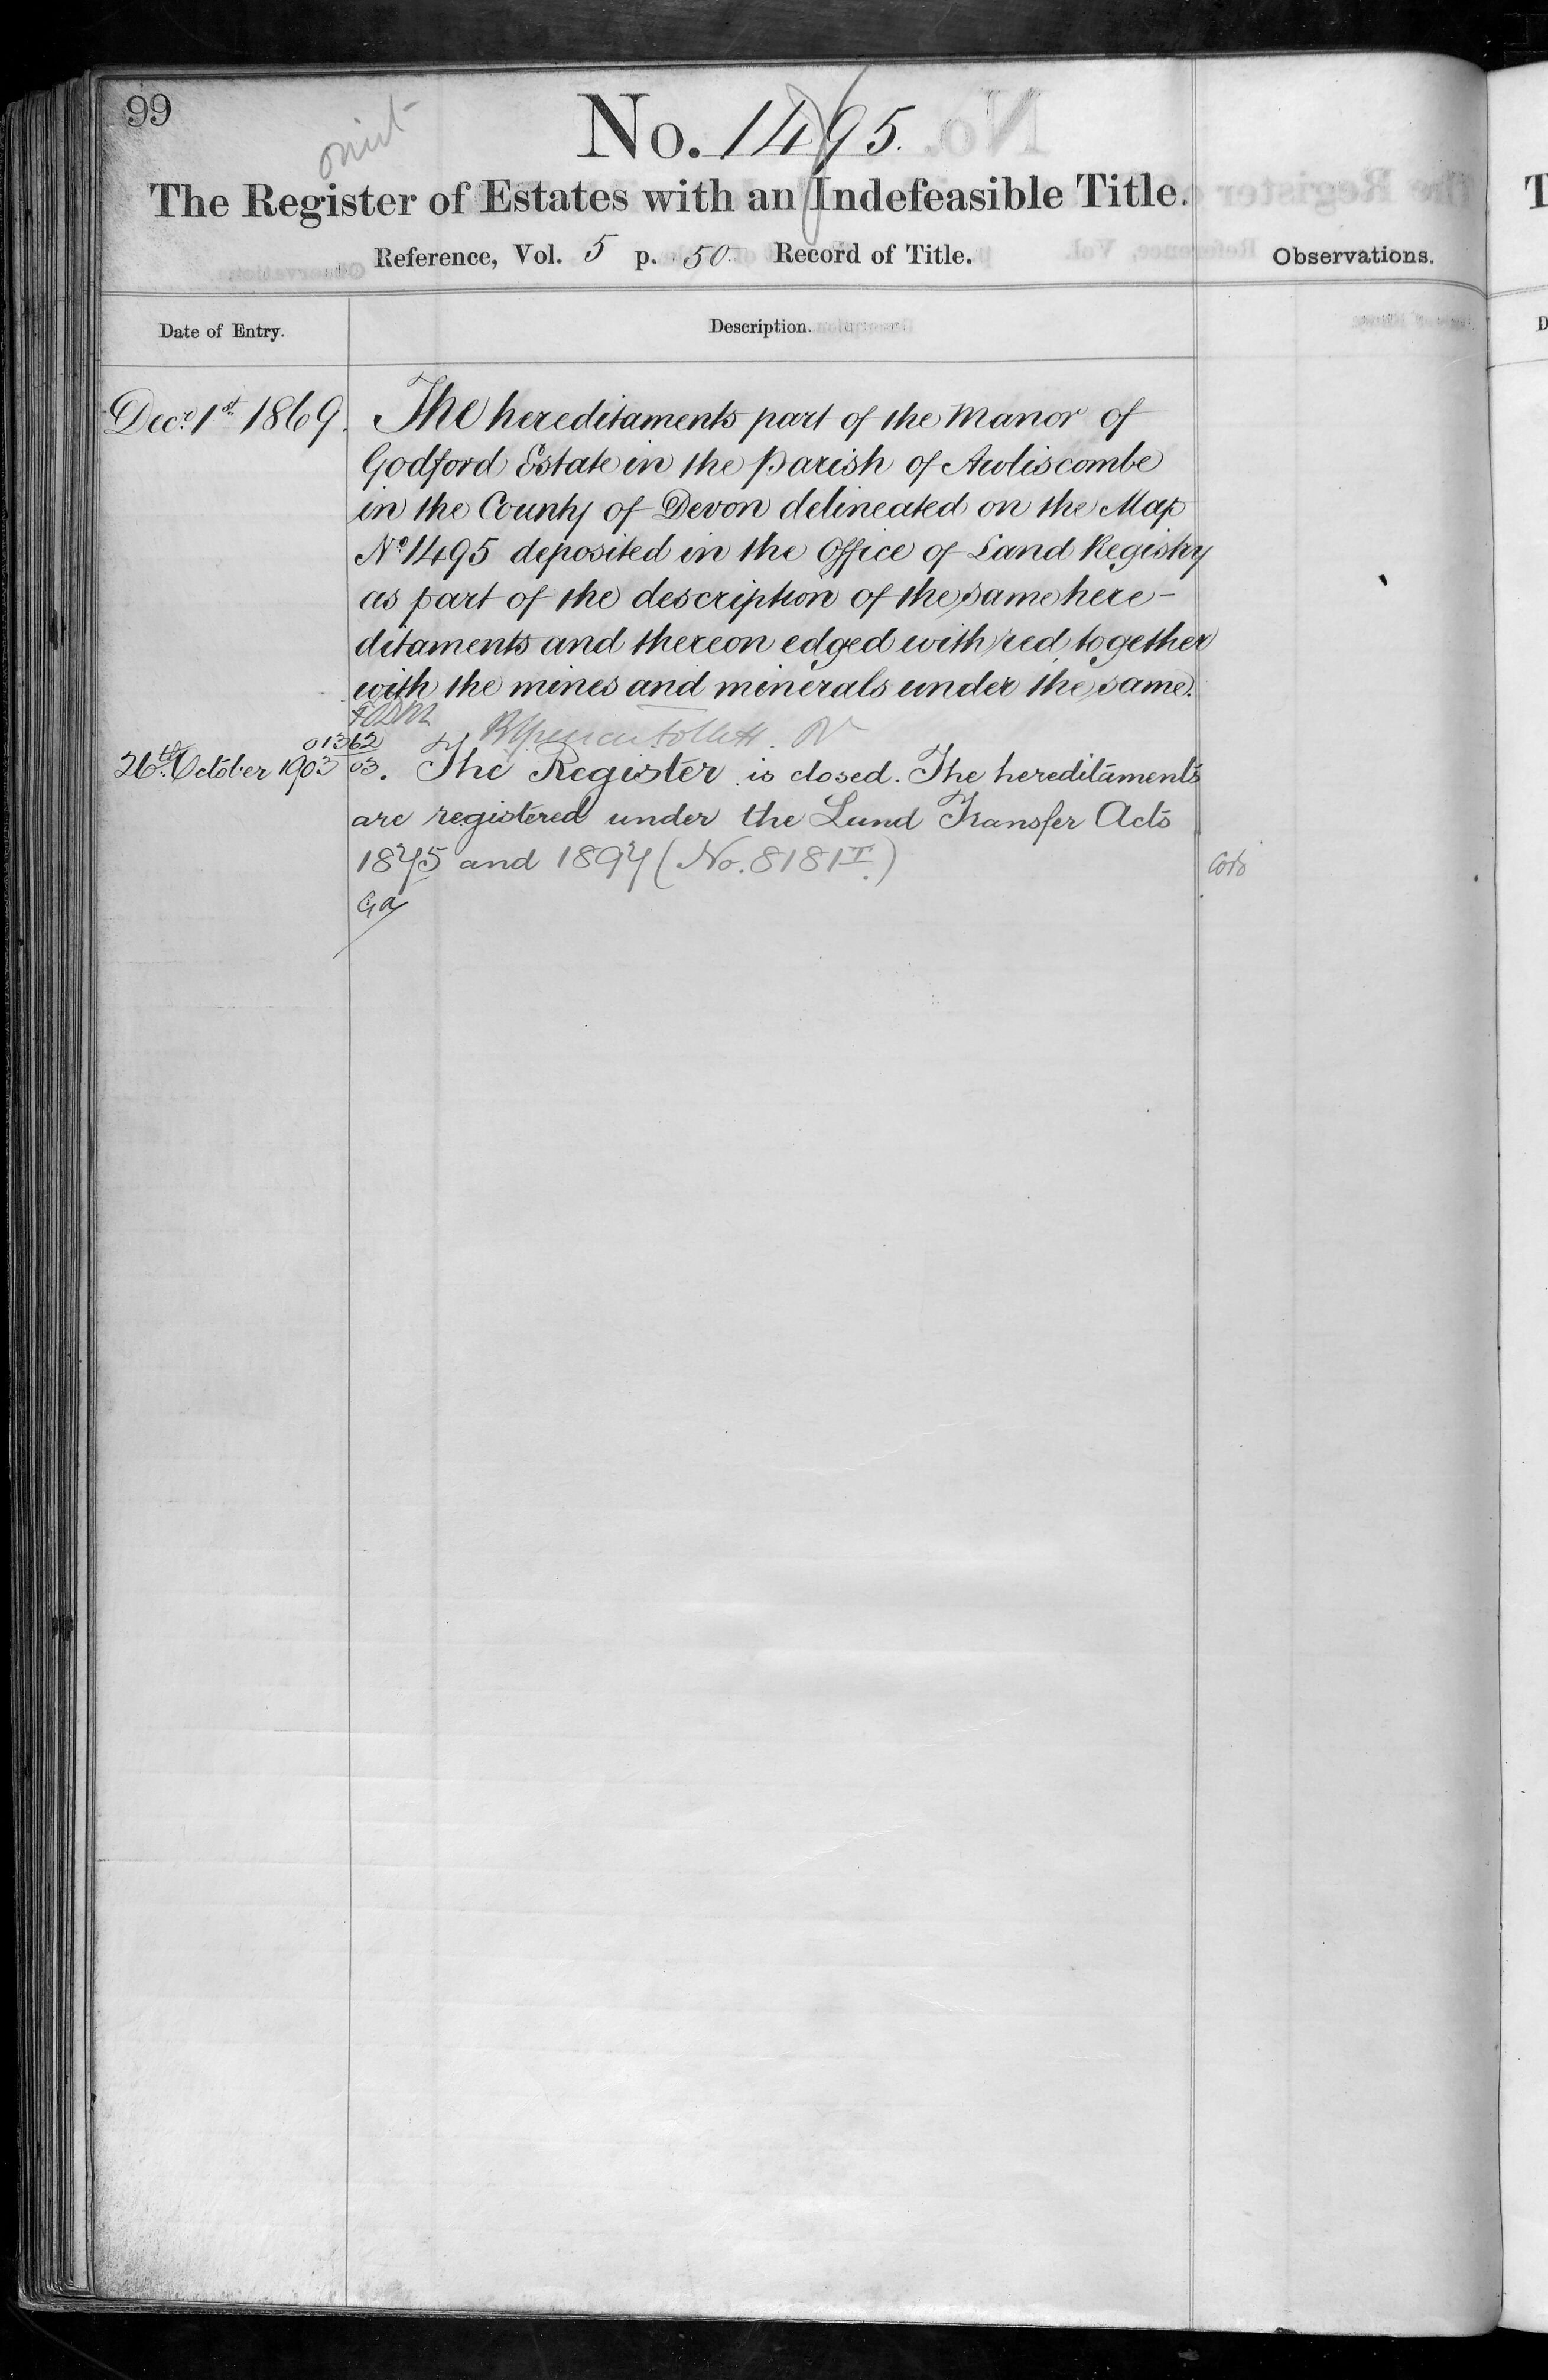 99
omit
No. 1495.
The Register of Estates with an Indefeasible Title.
Reference, Vol. 5 p. 50. Record of Title.
Observations.
Date of Entry.
Description.
Decr. 1st 1869. The hereditaments part of the Manor of
Godford Estate in the Parish of Awliscombe
in the County of Devon delineated on the Map
No 1495 deposited in the Office of Land Registry
as part of the description of the same here-
ditaments and thereon edged with red together
with the mines and minerals under the same.
01362
26th October 1903 03. The Register is closed. The hereditaments
are registered under the Land Transfer Acts
1875 and 1897 (No. 8181 I.)